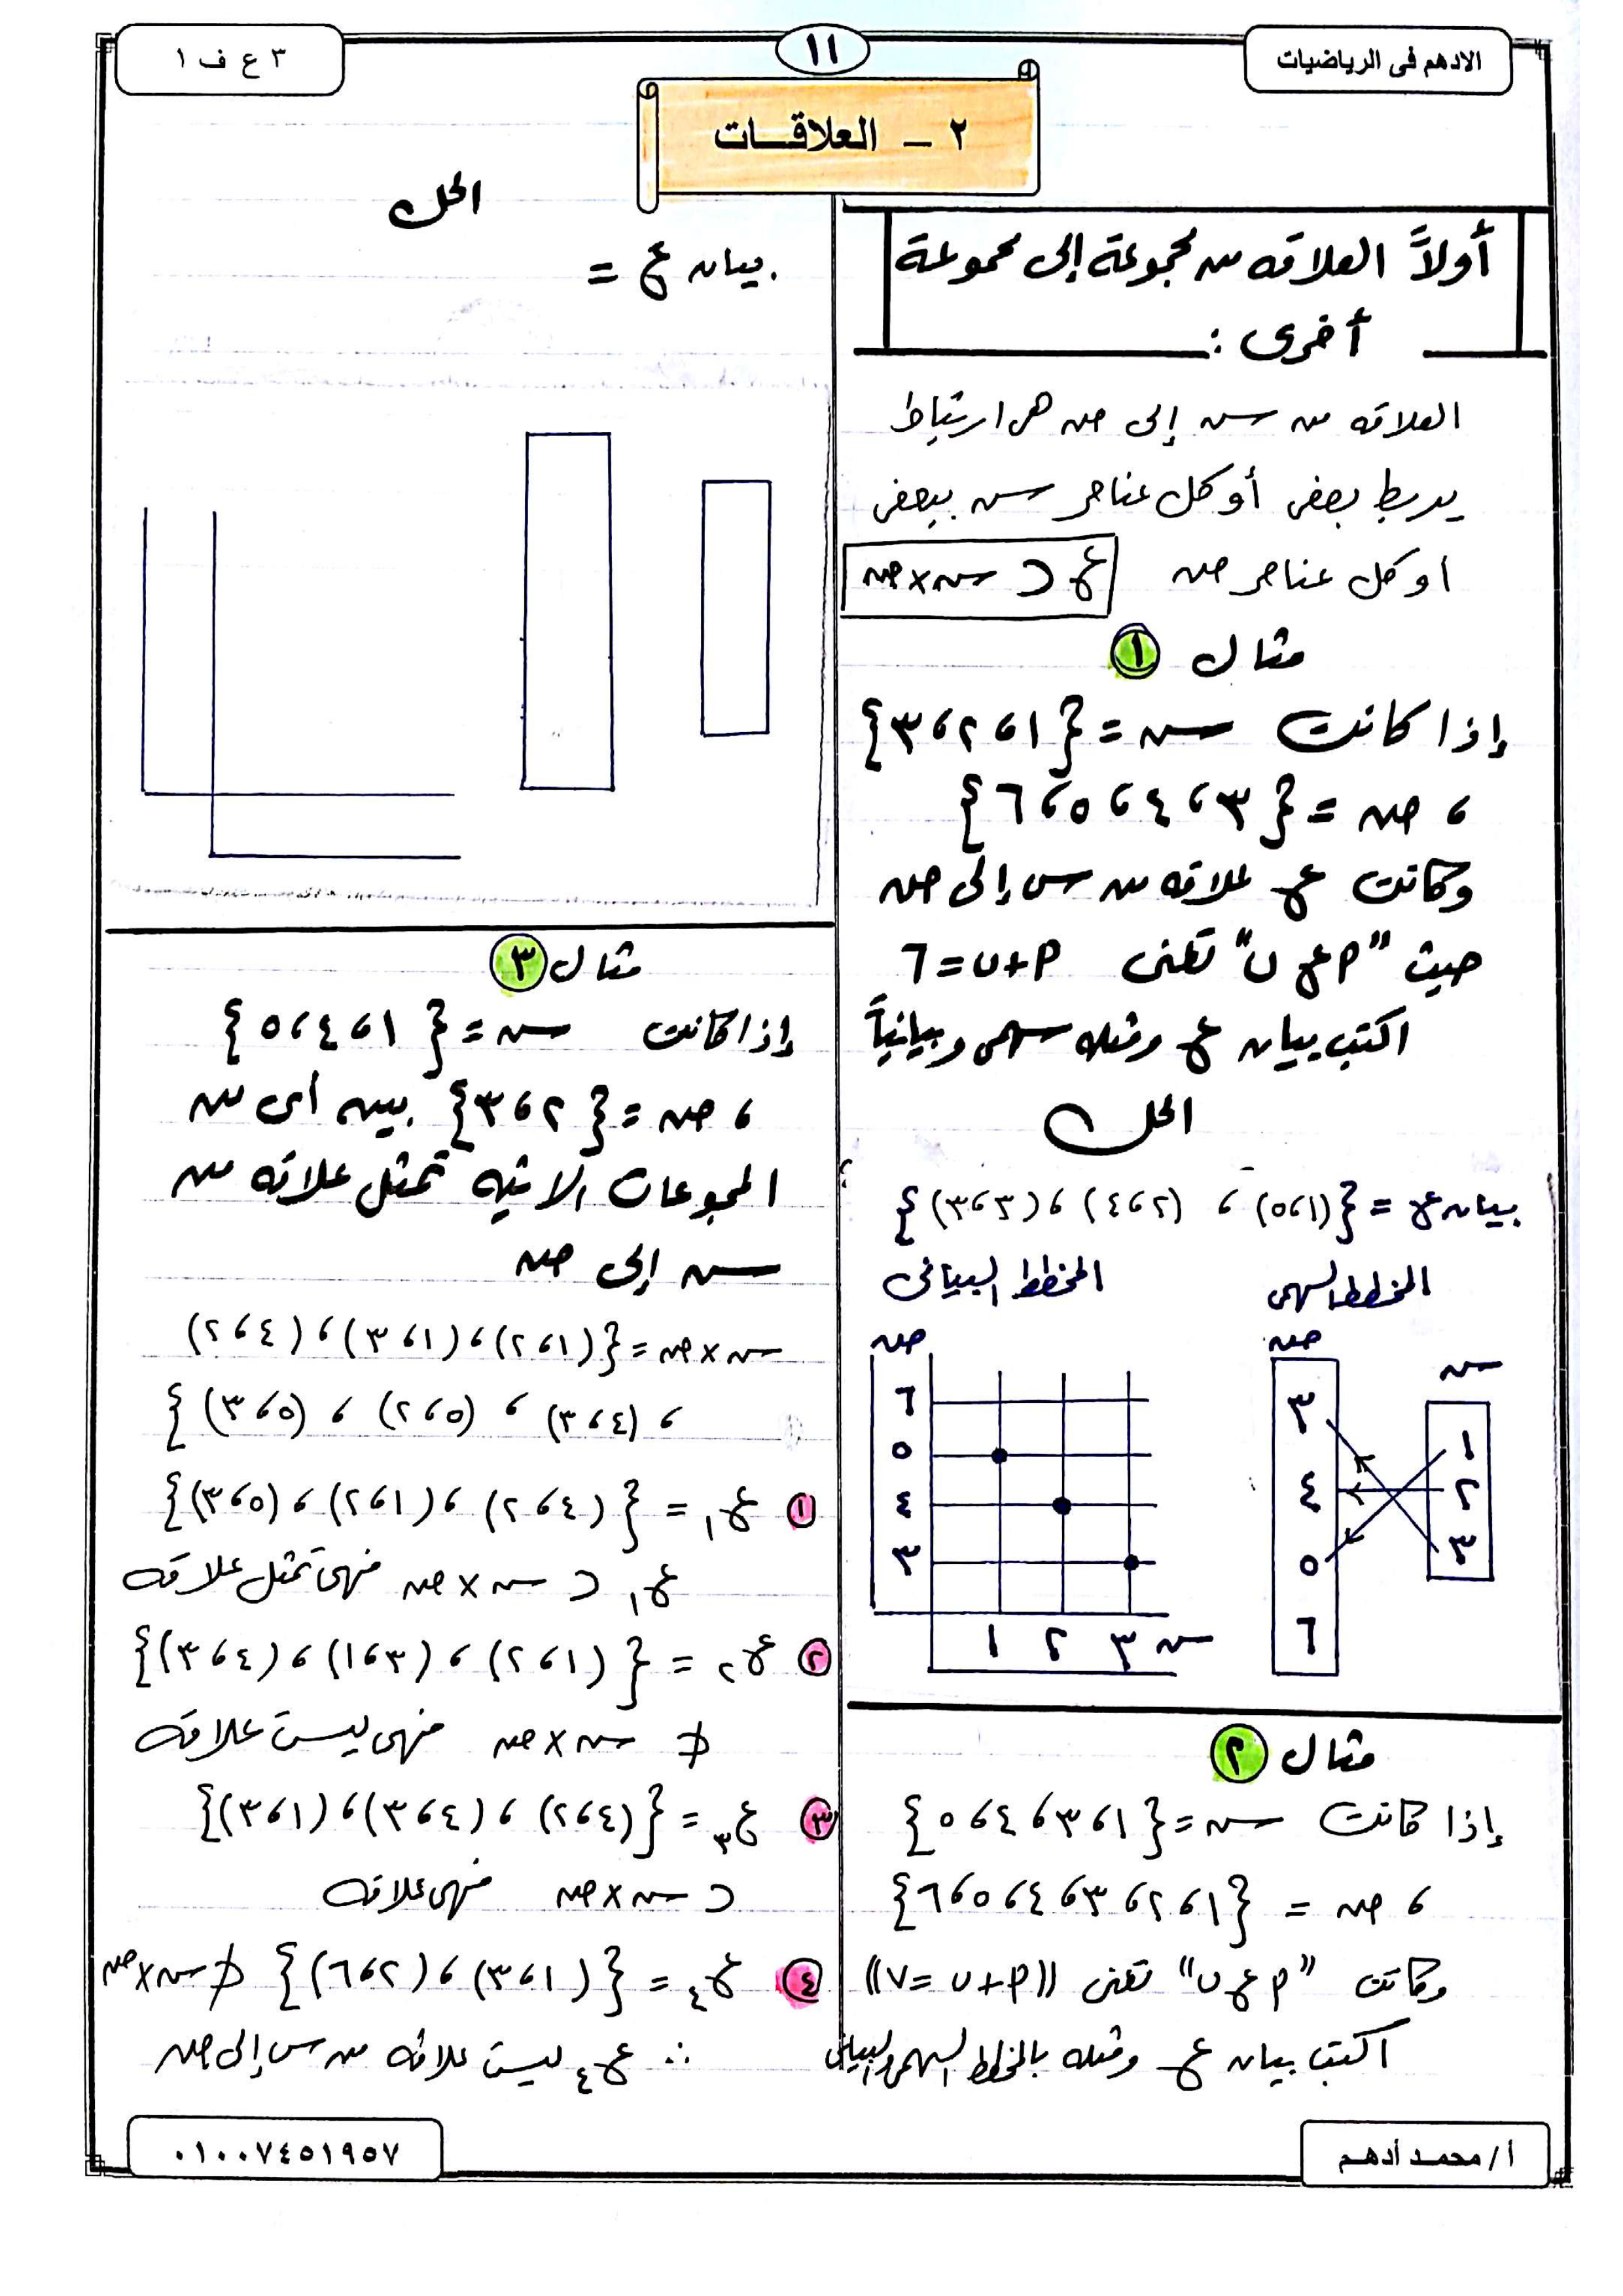 الادهم فى الرياضيات
١١
٣ ع ف ١
٢ - العلاقات
أولاً العلاقه من مجموعة إلى مجموعة
أخرى :
العلاقه من س إلى ص هى ارتباط
يربط بعض أو كل عناصر س ببعض
او كل عناصر ص ع ⊂ س × ص
مثال ١
إذا كانت س = {١ ، ٢ ، ٣}
، ص = {٣ ، ٤ ، ٥ ، ٦}
وكانت ع علاقه من س إلى ص
حيث "أ ع ب" تعنى أ + ب = ٦
اكتب بيان ع ومثله سهمى وبيانياً
الحل
بيان ع = {(١ ، ٥) ، (٢ ، ٤) ، (٣ ، ٣)}
المخطط السهمى
المخطط البيانى
س
ص
١
٢
٣
٣
٤
٥
٦
ص
٦
٥
٤
٣
١ ٢ ٣ س
مثال ٢
إذا كانت س = {١ ، ٣ ، ٤ ، ٥}
، ص = {١ ، ٢ ، ٣ ، ٤ ، ٥ ، ٦}
وكانت "أ ع ب" تعنى ((أ + ب = ٧))
اكتب بيان ع ومثله بالمخطط السهمى والبيانى
الحل
بيان ع =
مثال ٣
إذا كانت س = {١ ، ٤ ، ٥}
، ص = {٢ ، ٣} بين أى من
المجموعات الاتيه تمثل علاقه من
س إلى ص
س × ص = {(١ ، ٢) ، (١ ، ٣) ، (٤ ، ٢)
، (٤ ، ٣) ، (٥ ، ٢) ، (٥ ، ٣)}
١ ع١ = {(٤ ، ٢) ، (١ ، ٢) ، (٥ ، ٣)}
ع١ ⊂ س × ص فهى تمثل علاقه
٢ ع٢ = {(١ ، ٢) ، (٣ ، ١) ، (٤ ، ٣)}
⊄ س × ص فهى ليست علاقه
٣ ع٣ = {(٤ ، ٢) ، (٤ ، ٣) ، (١ ، ٣)}
⊂ س × ص فهى علاقه
٤ ع٤ = {(١ ، ٣) ، (٢ ، ٦)} ⊄ س × ص
∴ ع٤ ليست علاقه من س إلى ص
أ / محمد أدهم
٠١٠٠٧٤٥١٩٥٧